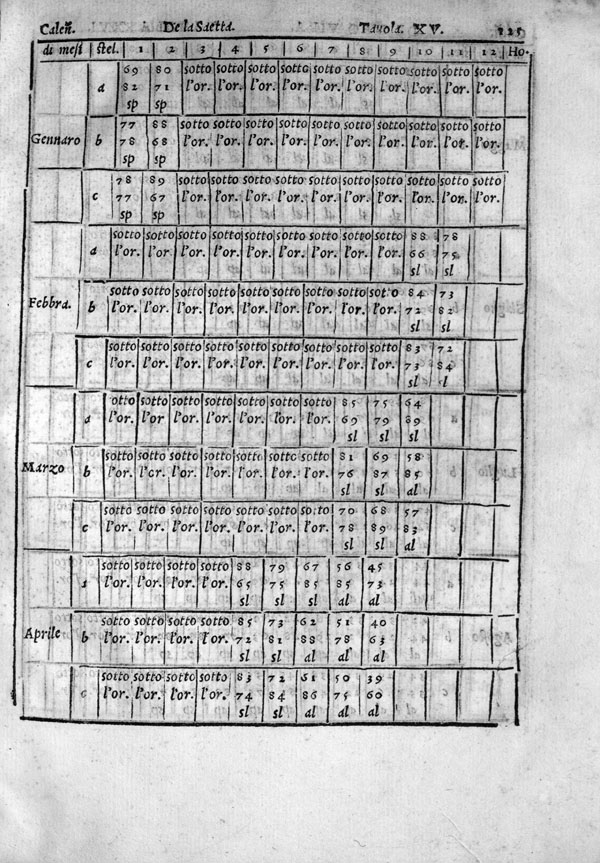 Caleñ. De la Saetta. Tavola. XV. 125
di mesi stel. 1 2 3 4 5 6 7 8 9 10 11 12 Ho.
69 80 sotto sotto sotto sotto sotto sotto sotto sotto sotto sotto
a 82 71 l'or. l'or. l'or. l'or. l'or. l'or. l'or. l'or. l'or. l'or.
sp sp
77 88 sotto sotto sotto sotto sotto sotto sotto sotto sotto sotto
Gennaro b 78 68 l'or. l'or. l'or. l'or. l'or. l'or. l'or. l'or. l'or. l'or.
sp sp
78 89 sotto sotto sotto sotto sotto sotto sotto sotto sotto sotto
c 77 67 l'or. l'or. l'or. l'or. l'or. l'or. l'or. l'or. l'or. l'or.
sp sp
sotto sotto sotto sotto sotto sotto sotto sotto sotto 88 78
a l'or. l'or. l'or. l'or. l'or. l'or. l'or. l'or. l'or. 66 75
sl sl
sotto sotto sotto sotto sotto sotto sotto sotto sotto 84 73
Febbra. b l'or. l'or. l'or. l'or. l'or. l'or. l'or. l'or. l'or. 72 82
sl sl
sotto sotto sotto sotto sotto sotto sotto sotto sotto 83 72
c l'or. l'or. l'or. l'or. l'or. l'or. l'or. l'or. l'or. 73 84
sl l
otto sotto sotto sotto sotto sotto sotto 85 75 64
a l'or. l'or l'or. l'or. l'or. l'or. l'or. 69 79 89
sl sl sl
sotto sotto sotto sotto sotto sotto sotto 81 69 58
Marzo b l'or. l'or. l'or. l'or. l'or. l'or. l'or. 76 87 85
sl sl al
sotto sotto sotto sotto sotto sotto sotto 70 68 57
c l'or. l'or. l'or. l'or. l'or. l'or. l'or. 78 89 83
sl sl al
sotto sotto sotto sotto 88 79 67 56 45
a l'or. l'or. l'or. l'or. 65 75 85 85 73
sl sl sl al al
sotto sotto sotto sotto 85 73 62 51 40
Aprile b l'or. l'or. l'or. l'or. 72 81 88 78 63
sl sl al al al
sotto sotto sotto sotto 83 72 61 50 39
c l'or. l'or. l'or. l'or. 74 84 86 75 60
sl sl al al al